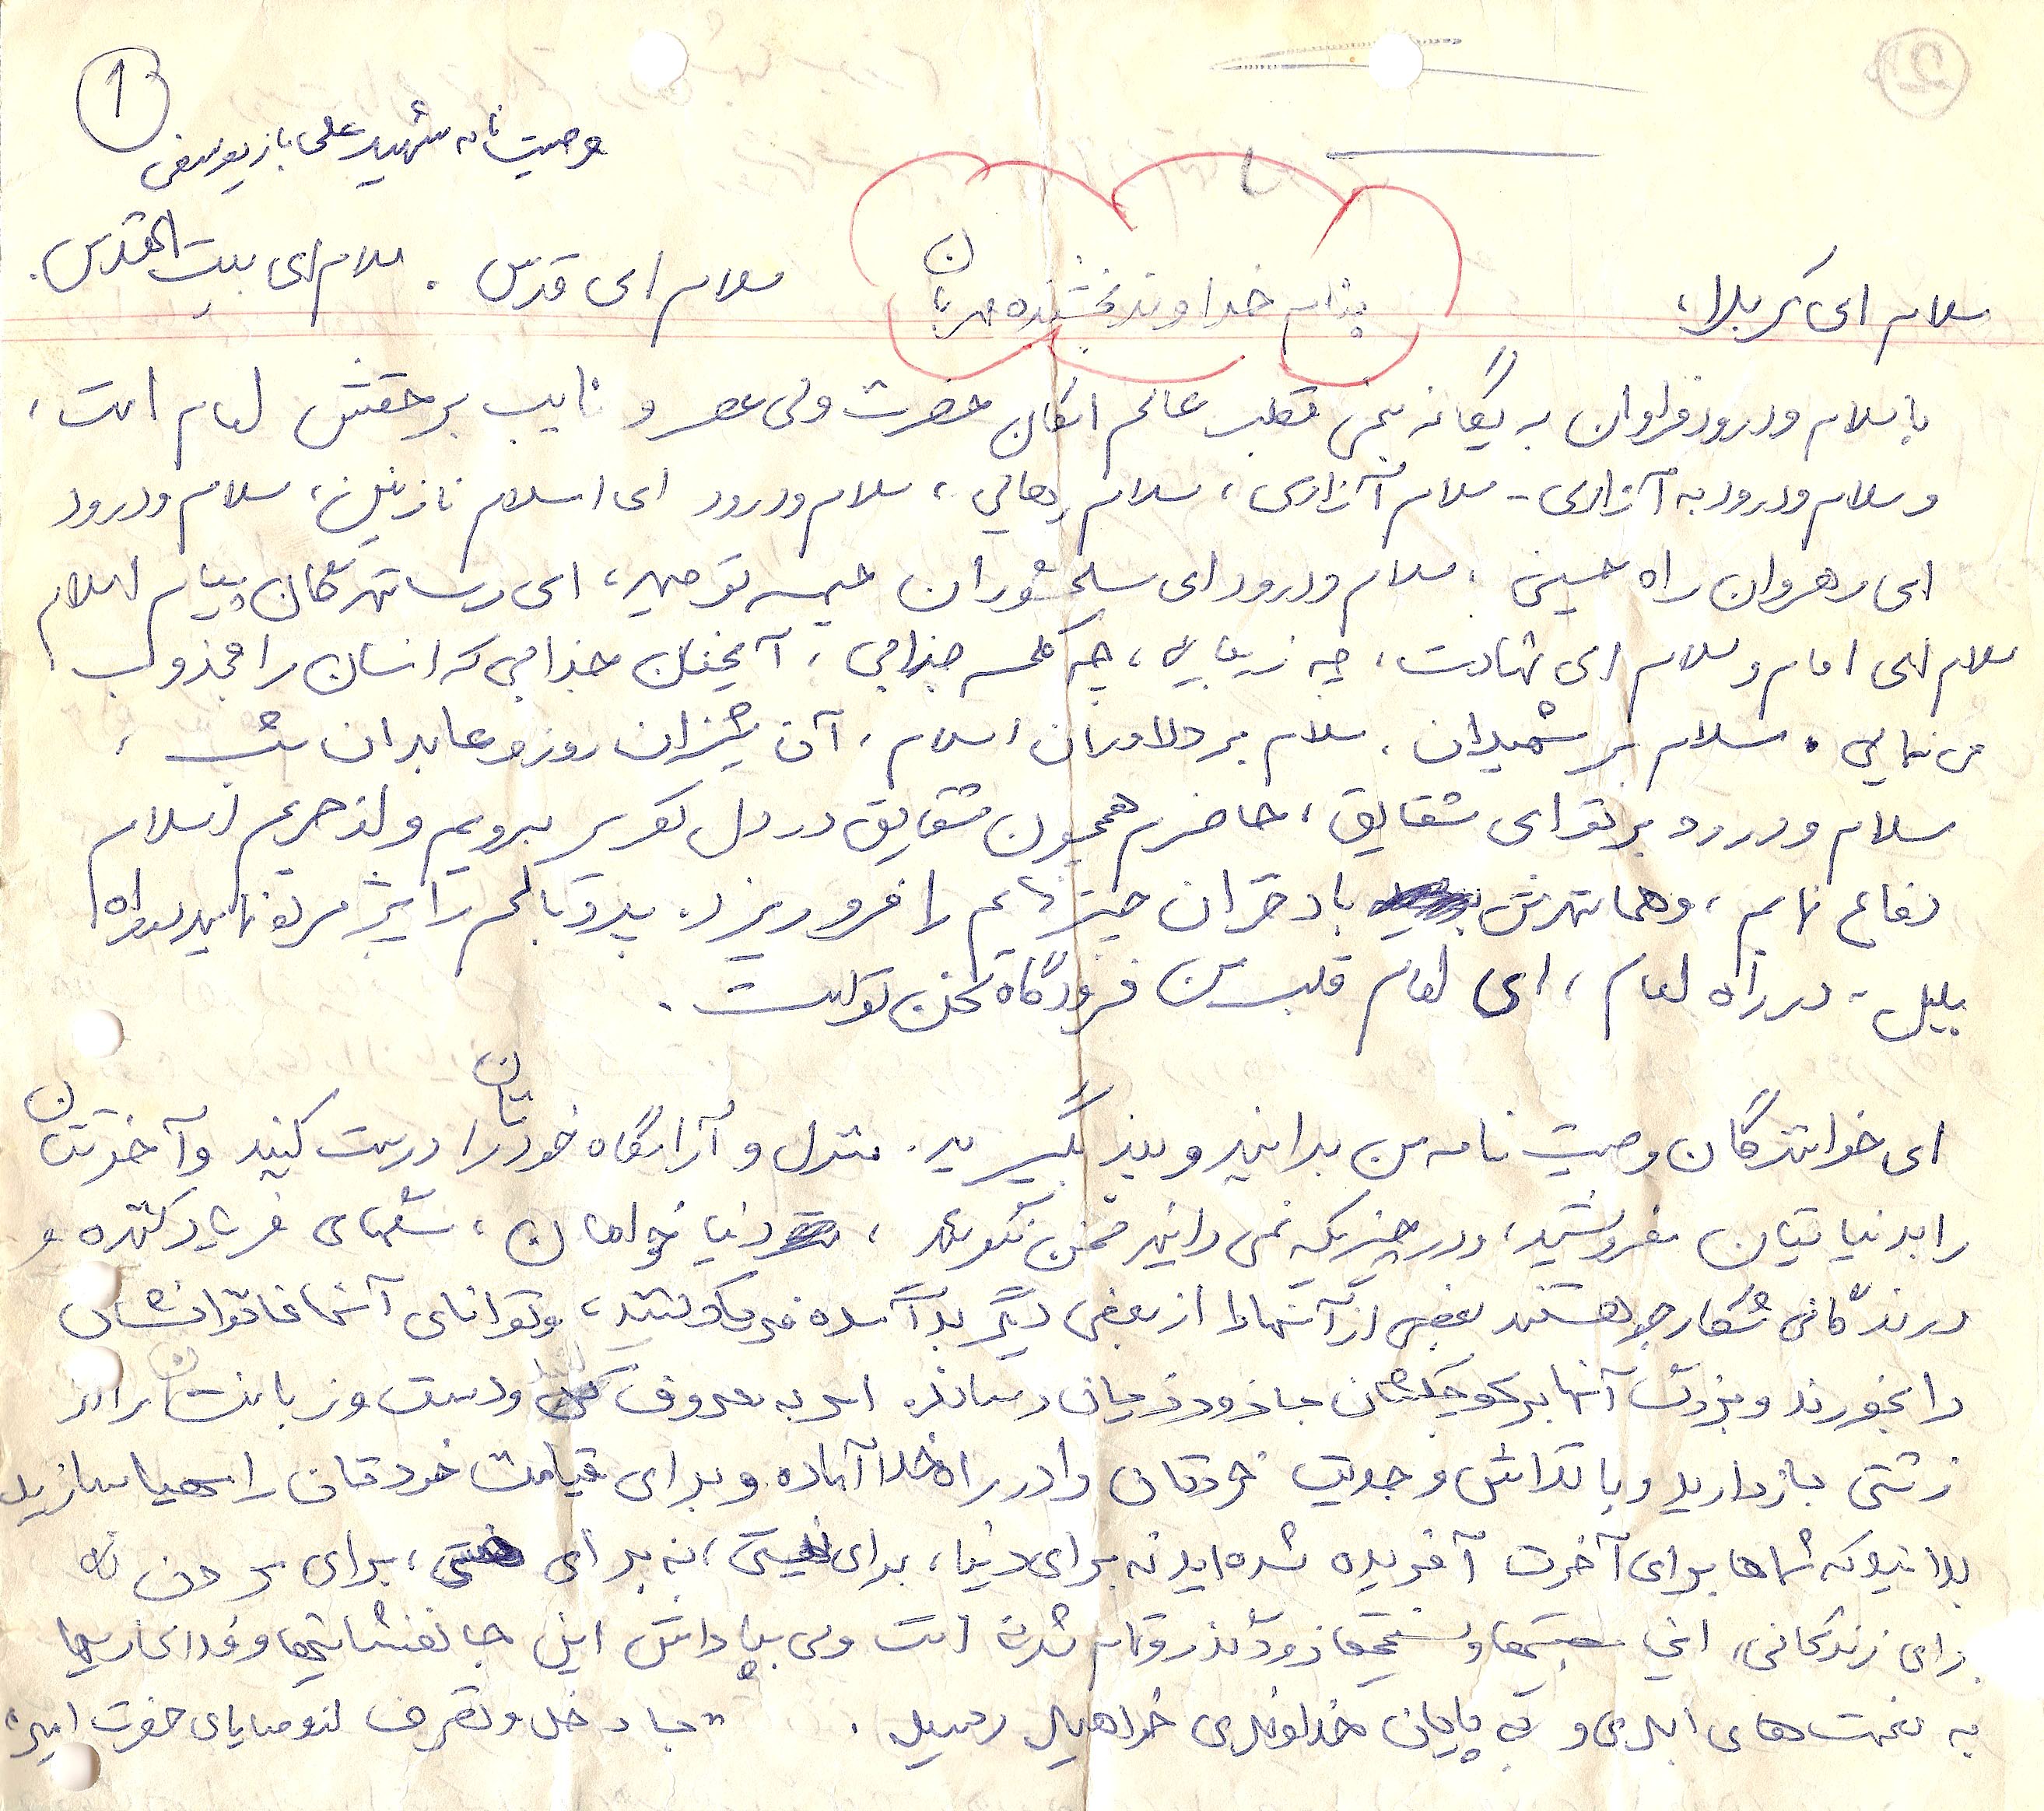 1
وصیت نامه شهید علی باز یوسفی
سلام ای کربلا، بنام خداوند بخشنده مهربان سلام ای قدس . سلام ای بیت المقدس.
با سلام و درود فراوان به یگانه منجی قطب عالم امکان حضرت ولی عصر و نایب برحقش امام امت،
و سلام و درود به آزادی - سلام آزادی، سلام رهایی، سلام و درود ای اسلام نازنین، سلام و درود
ای رهروان راه حسینی، سلام و درود ای سلحشوران خیمه توحید، ای رساننده گان پیام اسلام
سلام ای امام و سلام ای شهادت، چه زیبایی، چه کلمه جذابی، آنچنان جذابی که انسان را مجذوب
می نمایی. سلام بر شهیدان، سلام بر دلاوران اسلام، آن شیران روز و عابدان شب،
سلام و درود بر تو ای شقایق، حاضرم همچون شقایق در دل کویر برویم و از حریم اسلام
دفاع نمایم، باد خزان را فرو ریزد. پر و بالم را
بلبل - در راه امام، ای امام قلب من فرودگاه سخن تو است.
ای خوانندگان وصیت نامه من بدانید و پند بگیرید. منزل و آرامگاه خودتان را درست کنید و آخرتتان
را بدنیاتان مفروشید، و در چیزیکه نمی دانید سخن نگوئید، دنیا خواهان، سگهای فریاد کننده و
درندگانی شکارجو هستند بعضی از آنها از بعضی دیگر بد آمده ، و توانای آنها ناتوانشان
را بخورند و بزرگ آنها بر کوچکشان امر به معروف کنید و دست و زبانتان را از
زشتی بازدارید و با تلاش و جدیت خودتان را در راه خدا آماده و برای قیامت خودتان را مهیا سازید
بدانید که شماها برای آخرت آفریده شده اید نه برای دنیا، برای نیستی، نه برای هستی، برای مردن نه
برای زندگانی، این سختیها زودگذر و تمام شدنی است ولی بپاداش این جانفشانیها و فداکاریها
به نعمت های ابدی و بی پایان خداوندی خواهید رسید. "با دخل و تصرف از وصایای حضرت امیر"